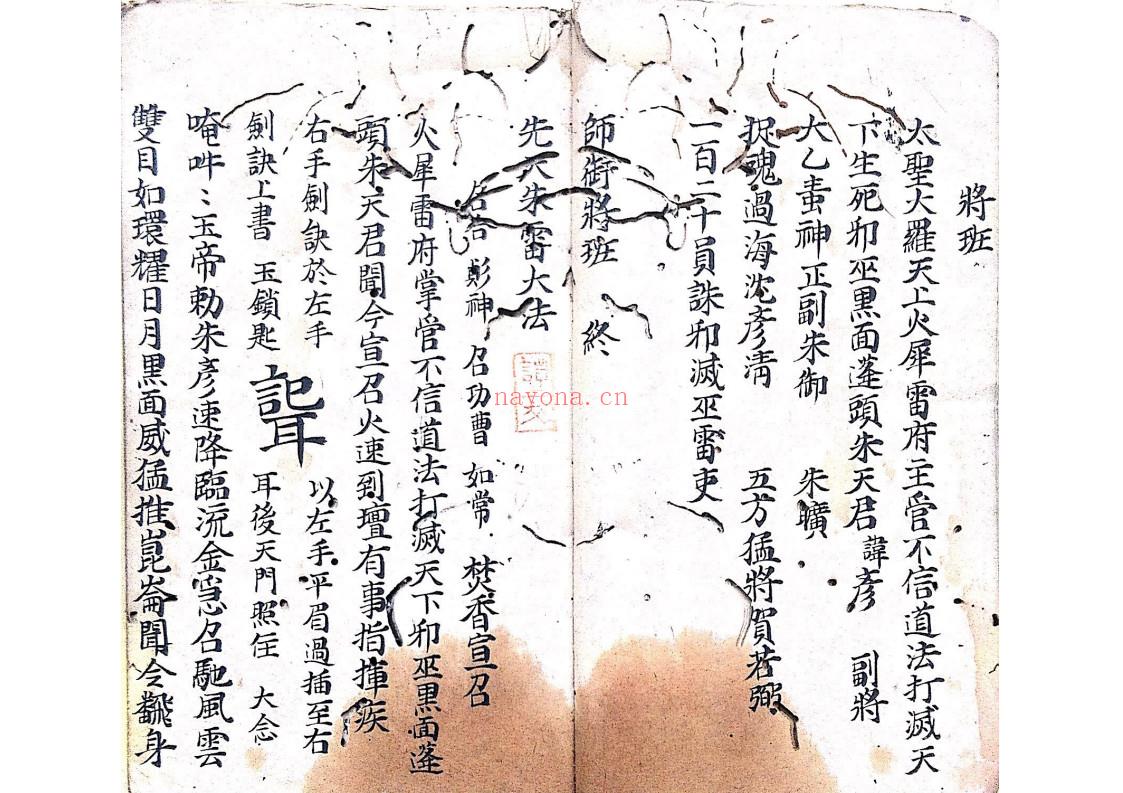 將班
太聖大羅天上火犀雷府主管不信道法打滅天
下生死卭巫黑面蓬頭朱天君 諱彥 副將
大乙䖝神正副朱御 朱曠
捉魂過海沈彥清 五方猛將賀若弼
一百二十員誅卭滅巫雷吏
師御將班 終
先天朱雷大法
彰神 召功曹 如常 焚香宣召
火犀雷府掌管不信道法打滅天下卭巫黑面蓬
頭朱天君聞今宣召火速到壇有事指揮疾
右手劍訣於左手 以左手平眉過插至右
劍訣上書 玉鎖匙 耳後天門照任 大念
唵吽〻玉帝勅朱彥速降臨流金急召馳風雲
雙目如環耀日月黑面威猛推崑崙聞令飜身
nayona.cn